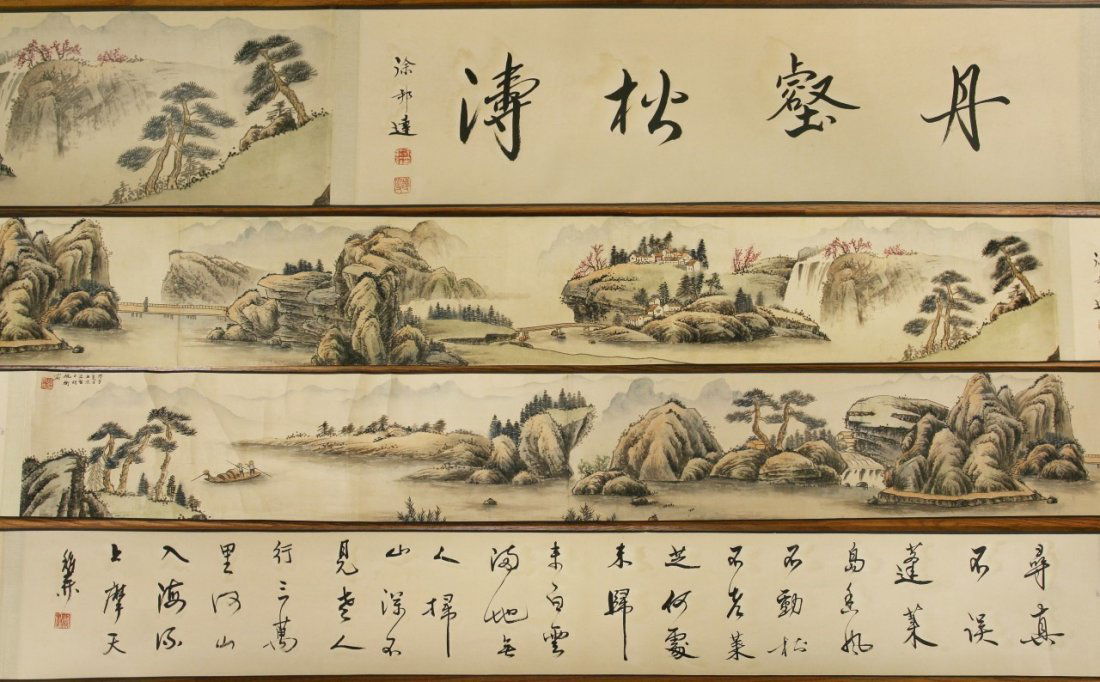 丹壑松濤
徐邦達
尋真
不誤
蓬萊
島香風
不動松
不老菜
芝何處
未歸
来白雲
滿地無
人掃
山深不
見老人
行三萬
里河山
入海流
上摩天